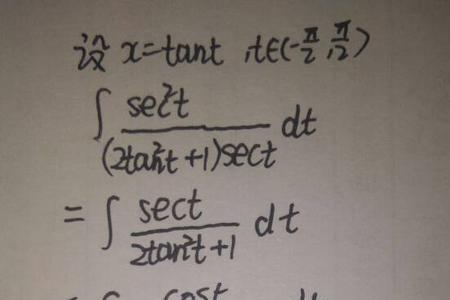 设 x=tant ,t∈(-π/2,π/2)
∫ sec²t / (2tan²t+1)sect dt
= ∫ sect / 2tan²t+1 dt